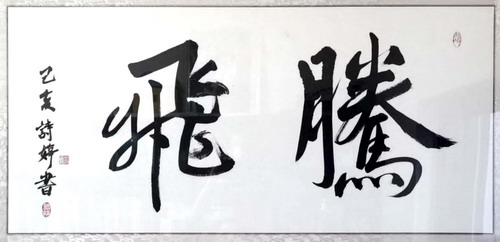 騰飛
己亥詩婷書